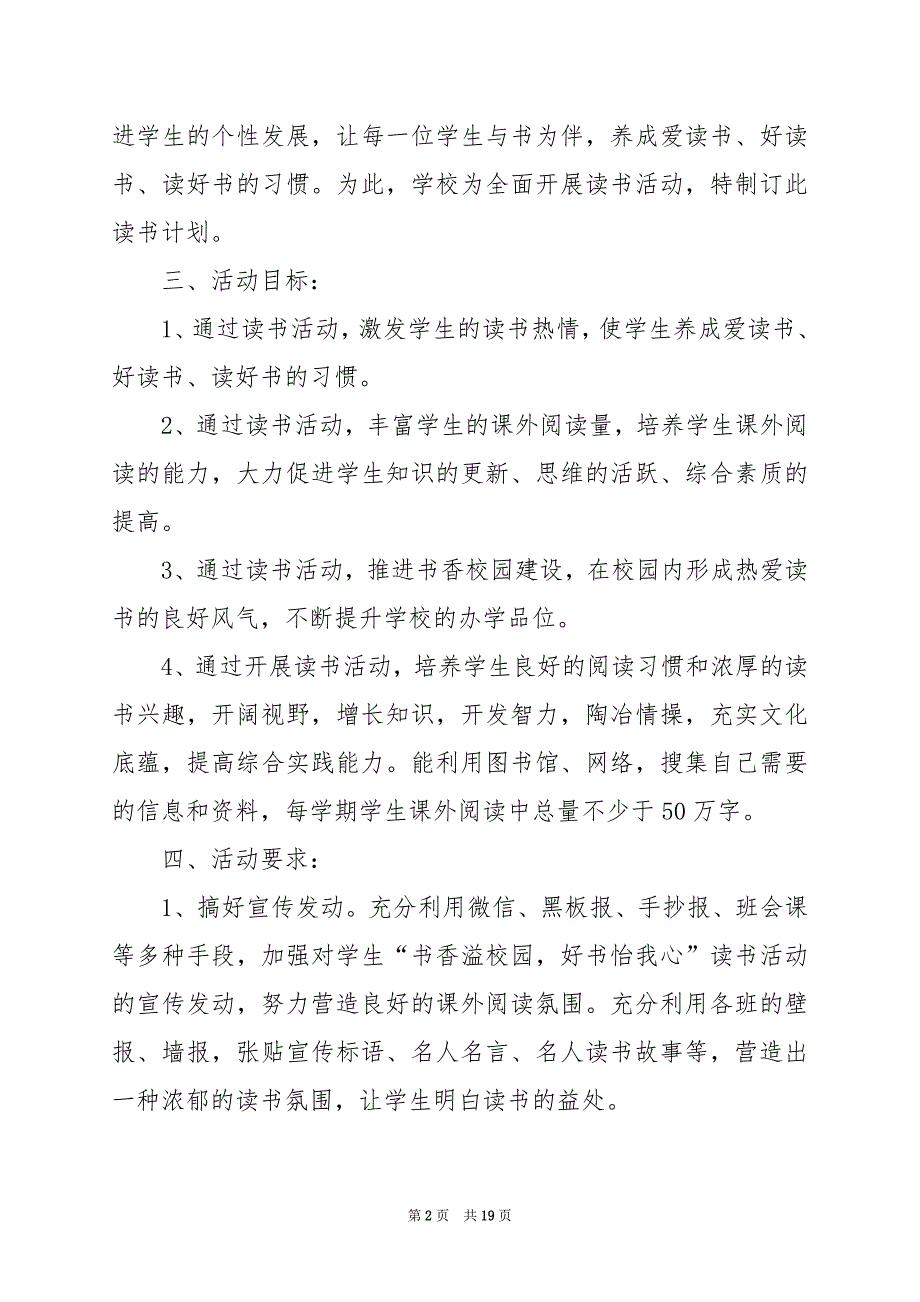 进学生的个性发展，让每一位学生与书为伴，养成爱读书、好读
书、读好书的习惯。为此，学校为全面开展读书活动，特制订此
读书计划。
三、活动目标：
1、通过读书活动，激发学生的读书热情，使学生养成爱读书、
好读书、读好书的习惯。
2、通过读书活动，丰富学生的课外阅读量，培养学生课外阅
读的能力，大力促进学生知识的更新、思维的活跃、综合素质的
提高。
3、通过读书活动，推进书香校园建设，在校园内形成热爱读
书的良好风气，不断提升学校的办学品位。
4、通过开展读书活动，培养学生良好的阅读习惯和浓厚的读
书兴趣，开阔视野，增长知识，开发智力，陶冶情操，充实文化
底蕴，提高综合实践能力。能利用图书馆、网络，搜集自己需要
的信息和资料，每学期学生课外阅读中总量不少于 50 万字。
四、活动要求：
1、搞好宣传发动。充分利用微信、黑板报、手抄报、班会课
等多种手段，加强对学生“书香溢校园，好书怡我心”读书活动
的宣传发动，努力营造良好的课外阅读氛围。充分利用各班的壁
报、墙报，张贴宣传标语、名人名言、名人读书故事等，营造出
一种浓郁的读书氛围，让学生明白读书的益处。
第 2 页 共 19 页